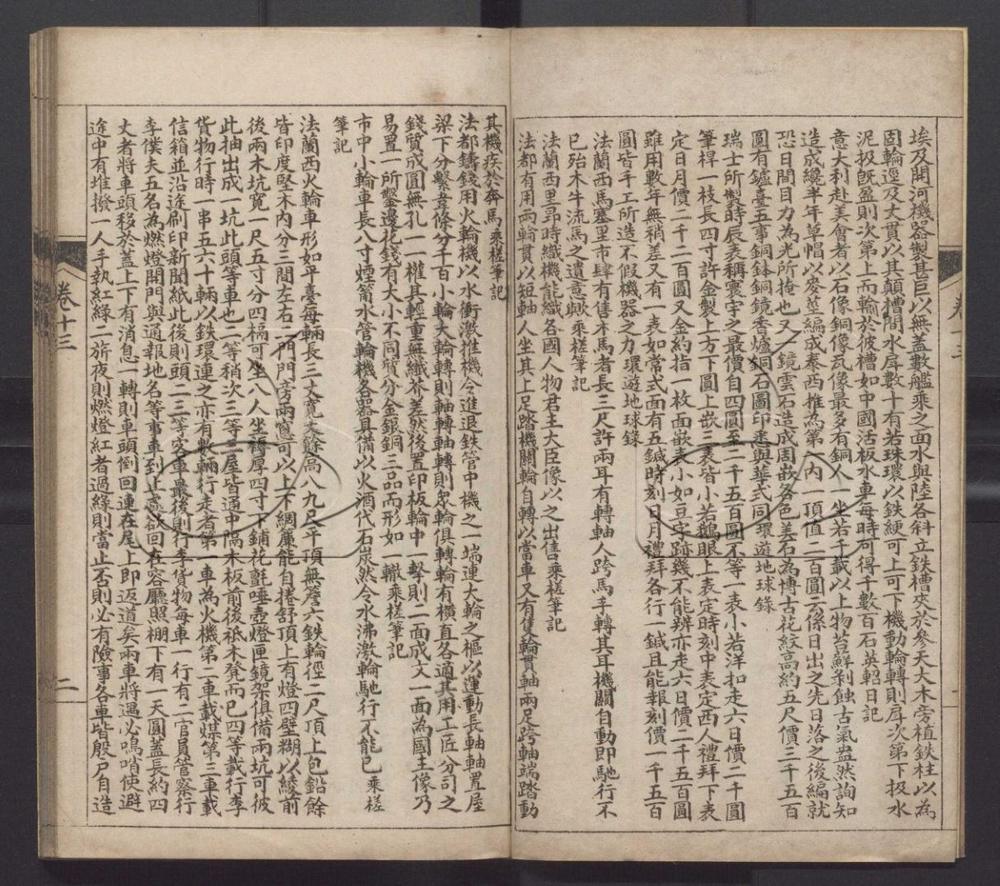 埃及開河機器製甚巨以無蓋數艦乘之面水與陸各斜立鉄槽夾於參天大木旁植鉄柱以為
固輪逕及大貫以其顛槽間水戽數十有若珠環以鉄綆可上可下機動輪轉則戽次第下扱水
泥扱旣盈則次第上而輸於彼槽如中國活板水車每時可得千數百石英軺日記
意大利赴美會者以石像銅像瓦像最多有銅人一坐若千載以上物苔鮮剝蝕古氣盎然詢知
造成纔半年草帽以麥莖編成泰西推為第一內一頂值二百圓云係日出之先日落之後編就
恐日間目力為光所掩也又一鏡雲石造成周嵌各色美石為博古花紋高約五尺價三千五百
圓有鑪臺五事銅鉢銅鏡香爐銅石圖印悉與華式同環遊地球錄
瑞士所製時辰表稱寰宇之最價自四圓至二千五百圓不等一表小若洋扣走六日價二千圓
筆桿一枝長四寸許金製上方下圓上嵌三表皆小若鵝眼上表定時刻中表定西人禮拜下表
定日月價二千二百圓又金約指一枚面嵌表小如豆字跡幾不能辨亦走六日價二千五百圓
雖用數年無稍差又有一表如常式面有五鍼時刻日月禮拜各行一鍼且能報刻價一千五百
圓皆手工所造不假機器之力環遊地球錄
法蘭西馬塞里市肆有售木馬者長三尺許兩耳有轉軸人跨馬手轉其耳機關自動即馳行不
已殆木牛流馬之遺意歟乘槎筆記
法蘭西里昻時織機能織各國人物君主大臣像以之出售乘槎筆記
法都有用兩輪貫以短軸人坐其上足踏機關輪自轉以當車又有隻輪貫軸兩足跨軸端踏動
其機疾於奔馬乘槎筆記
法都鑄錢用火輪機以水衝激推機令進退鉄管中機之一端連大輪之樞以運動長軸軸置屋
梁下分繫韋條分千百小輪大輪轉則軸轉軸轉則衆輪俱轉輪有橫直各適其用工匠分司之
錢質成圓無孔一一權其輕重無纖芥差然後置印板輪中一擊則二面成文一面為國主像乃
易置一所鏨邊花錢有大小不同質分金銀銅三品而形如一轍乘槎筆記
市中小輪車長八寸煙筩水管輪機各器具備以火酒代石炭然令水沸激輪馳行不能已乘槎
筆記
法蘭西火輪車形如平臺每輛長三丈寬丈餘高八九尺平頂無簷六鉄輪徑二尺頂上包鉛餘
皆印度堅木內分三間左右二門門旁兩窻可以上下綢簾能自捲舒頂上有燈四壁糊以綾前
後兩木坑寬一尺五寸分四榻可坐八人坐褥厚四寸下鋪花氈唾壺燈匣鏡架俱備兩坑可彼
此抽出成一坑此頭等車也二等稍次三等三屋皆通中隔木板前後祇木凳而已四等載行李
貨物行時一串五六十輛以鉄環連之亦有數輛行走者第一車為火機第二車載煤第三車載
信箱並沿途刷印新聞紙此後則頭二三等客車最後則行李貨物每車一行有二官員管察行
李僕夫五名為燃燈開門與通報地名等事車到止處欲回在容廳照棚下有一天圓蓋長約四
丈者將車頭移於蓋上下有消息一轉則車頭倒回連在尾上即返道矣兩車將遇必鳴哨使避
途中有堆撥一人手執紅綠二旂夜則燃燈紅者過綠則當止否則必有險事各車皆殷戶自造
卷十三
二